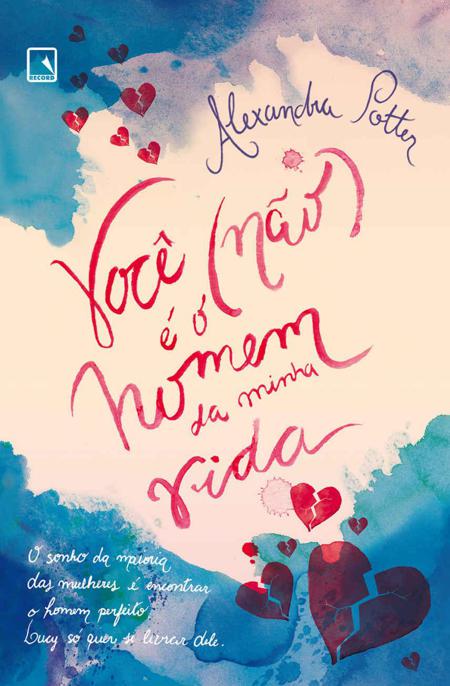 RECORD
Alexandra Potter
Você (não)
é o
homem
da minha
vida
O sonho da maioria
das mulheres é encontrar
o homem perfeito
Lucy só quer se livrar dele.